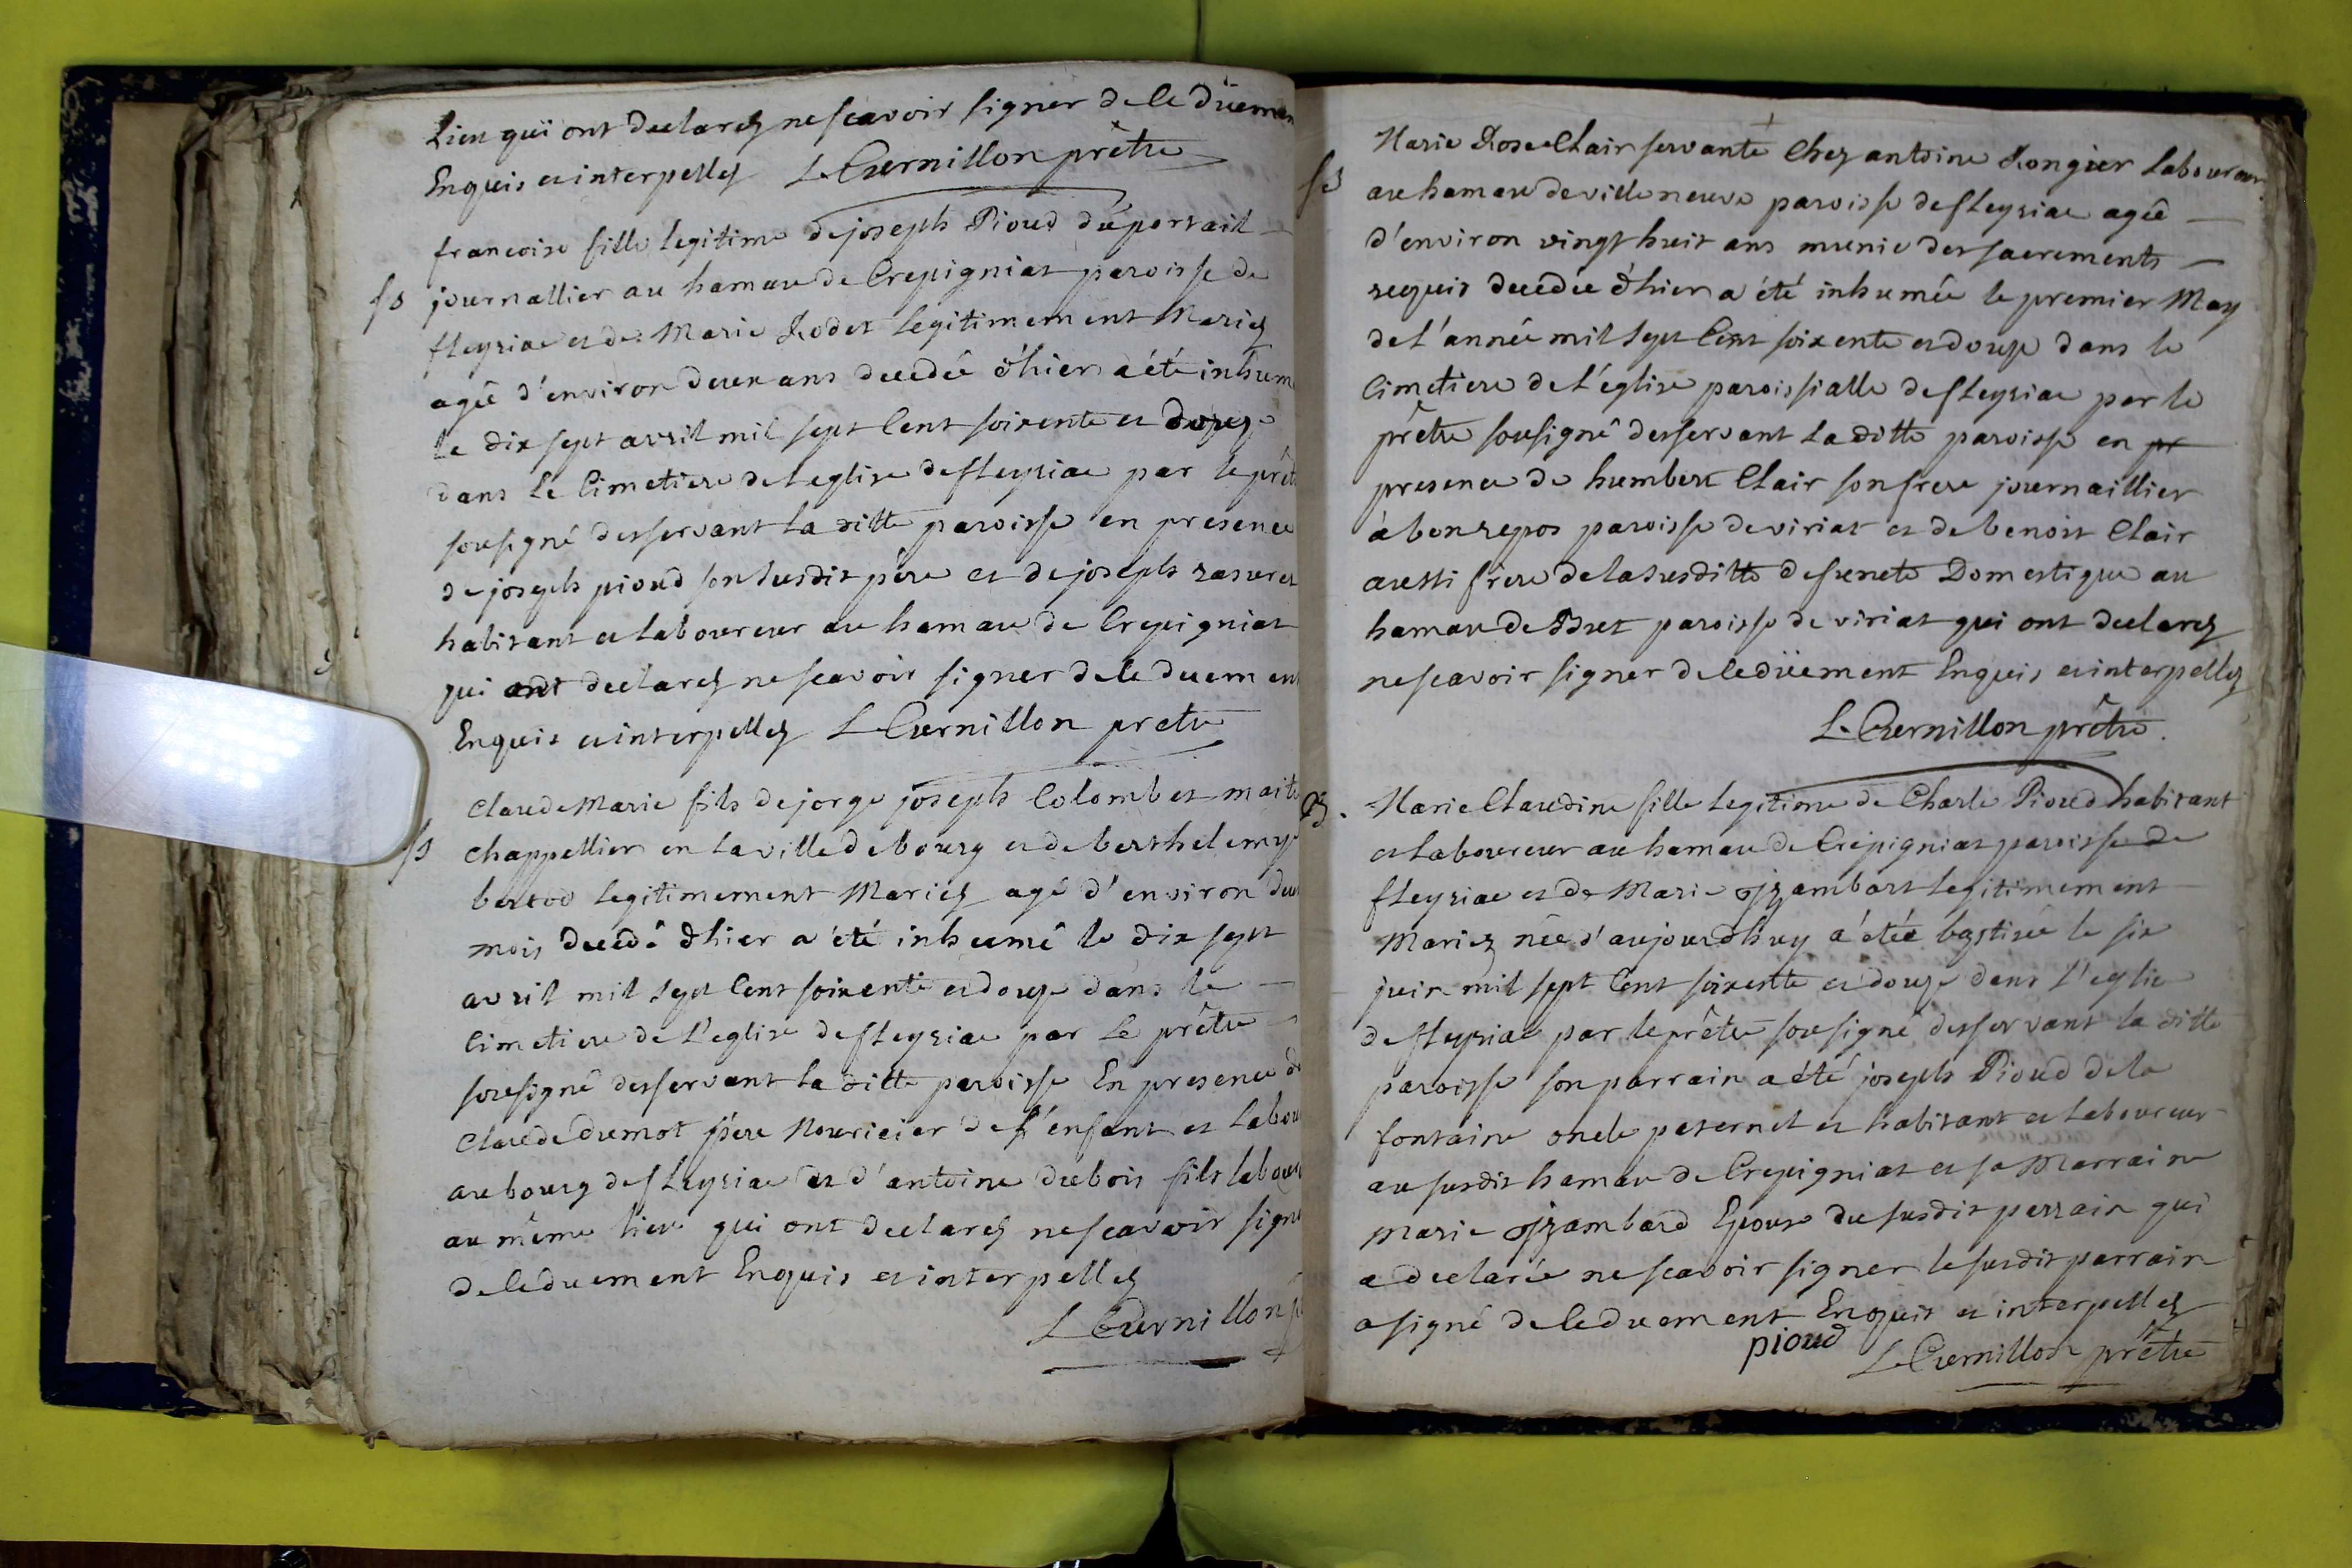 Lieu qui ont declarez ne scavoir signer de ce düemen
Enquis et interpellez L Cuernillon prêtre
francoise fille legitime de joseph Pioud du portail
fs journallier au hamau de Crepigniat paroisse de
fleyriac et de Marie Rodet legitimement Mariez
agée d'environ deux ans decedée d'hier a été inhum
le dix sept avril mil sept Cent soixente et douze
dans le Cimetiere de l'eglise de fleyriac par le prêt
sousigné desservant la ditte paroisse en presence
de joseph pioud son susdit père et de joseph
habitant et laboureur au hamau de Crepigniat
qui ont declarez ne scavoir signer de ce duement
Enquis et interpellez L Cuernillon pretre
Claude Marie fils de jorge joseph Colombet maitr
fs chappellier en la ville de bourg et de berthelemye
bertod legitimement Mariez agé d'environ deu
mois decedé d'hier a été inhumé le dix sept
avril mil sept Cent soixente et douze dans le
Cimetiere de l'eglise de fleyriac par Le prêtre
sousigné desservant la ditte paroisse En presence de
Claude dumot père Nouricier de l'enfant et labou
au bourg de fleyriac et d'antoine dubois fils labour
au même lieu qui ont declarez ne scavoir signe
de ce duement Enquis et interpellez
L Cuernillon p
fs Marie Rose Clair servante Chez antoine Rongier laboureur
au hamau de villeneuve paroisse de fleyriac agée
d'environ vingt huit ans munie des sacrements
requis decedée d'hier a été inhumée le premier May
de l'année mil sept Cent soixente et douze dans le
Cimetiere de l'église paroissialle de fleyriac par le
prêtre sousigné desservant la ditte paroisse en pr
presence de humbert Clair son frere journaillier
à bon repos paroisse de viriat et de benoit Clair
aussi frère de la susditte defuncte Domestique au
hamau de But paroisse de viriat qui ont declarez
ne scavoir signer de ce düement Enquis et interpellez
L Cuernillon prêtre.
B. Marie Claudine fille legitime de Charle Pioud habitant
et laboureur au hamau de Crepigniat paroisse de
fleyriac et de Marie ojzambart legitimement
Mariez née d'aujourdhuy a étée baptisée le six
juin mil sept Cent soixente et douze dans l'eglie
de fleyriac par le prêtre sousigné desservant la ditte
paroisse son parrain a été joseph Pioud de la
fontaine oncle paternel et habitant et laboureur
au susdit hamau de Crepigniat et sa Marraine
Marie ojzambard Epouse du susdit parrain qui
a declarée ne scavoir signer le susdit parrain
a signé de ce duement Enquis et interpellez
pioud L Cuernillon prêtre